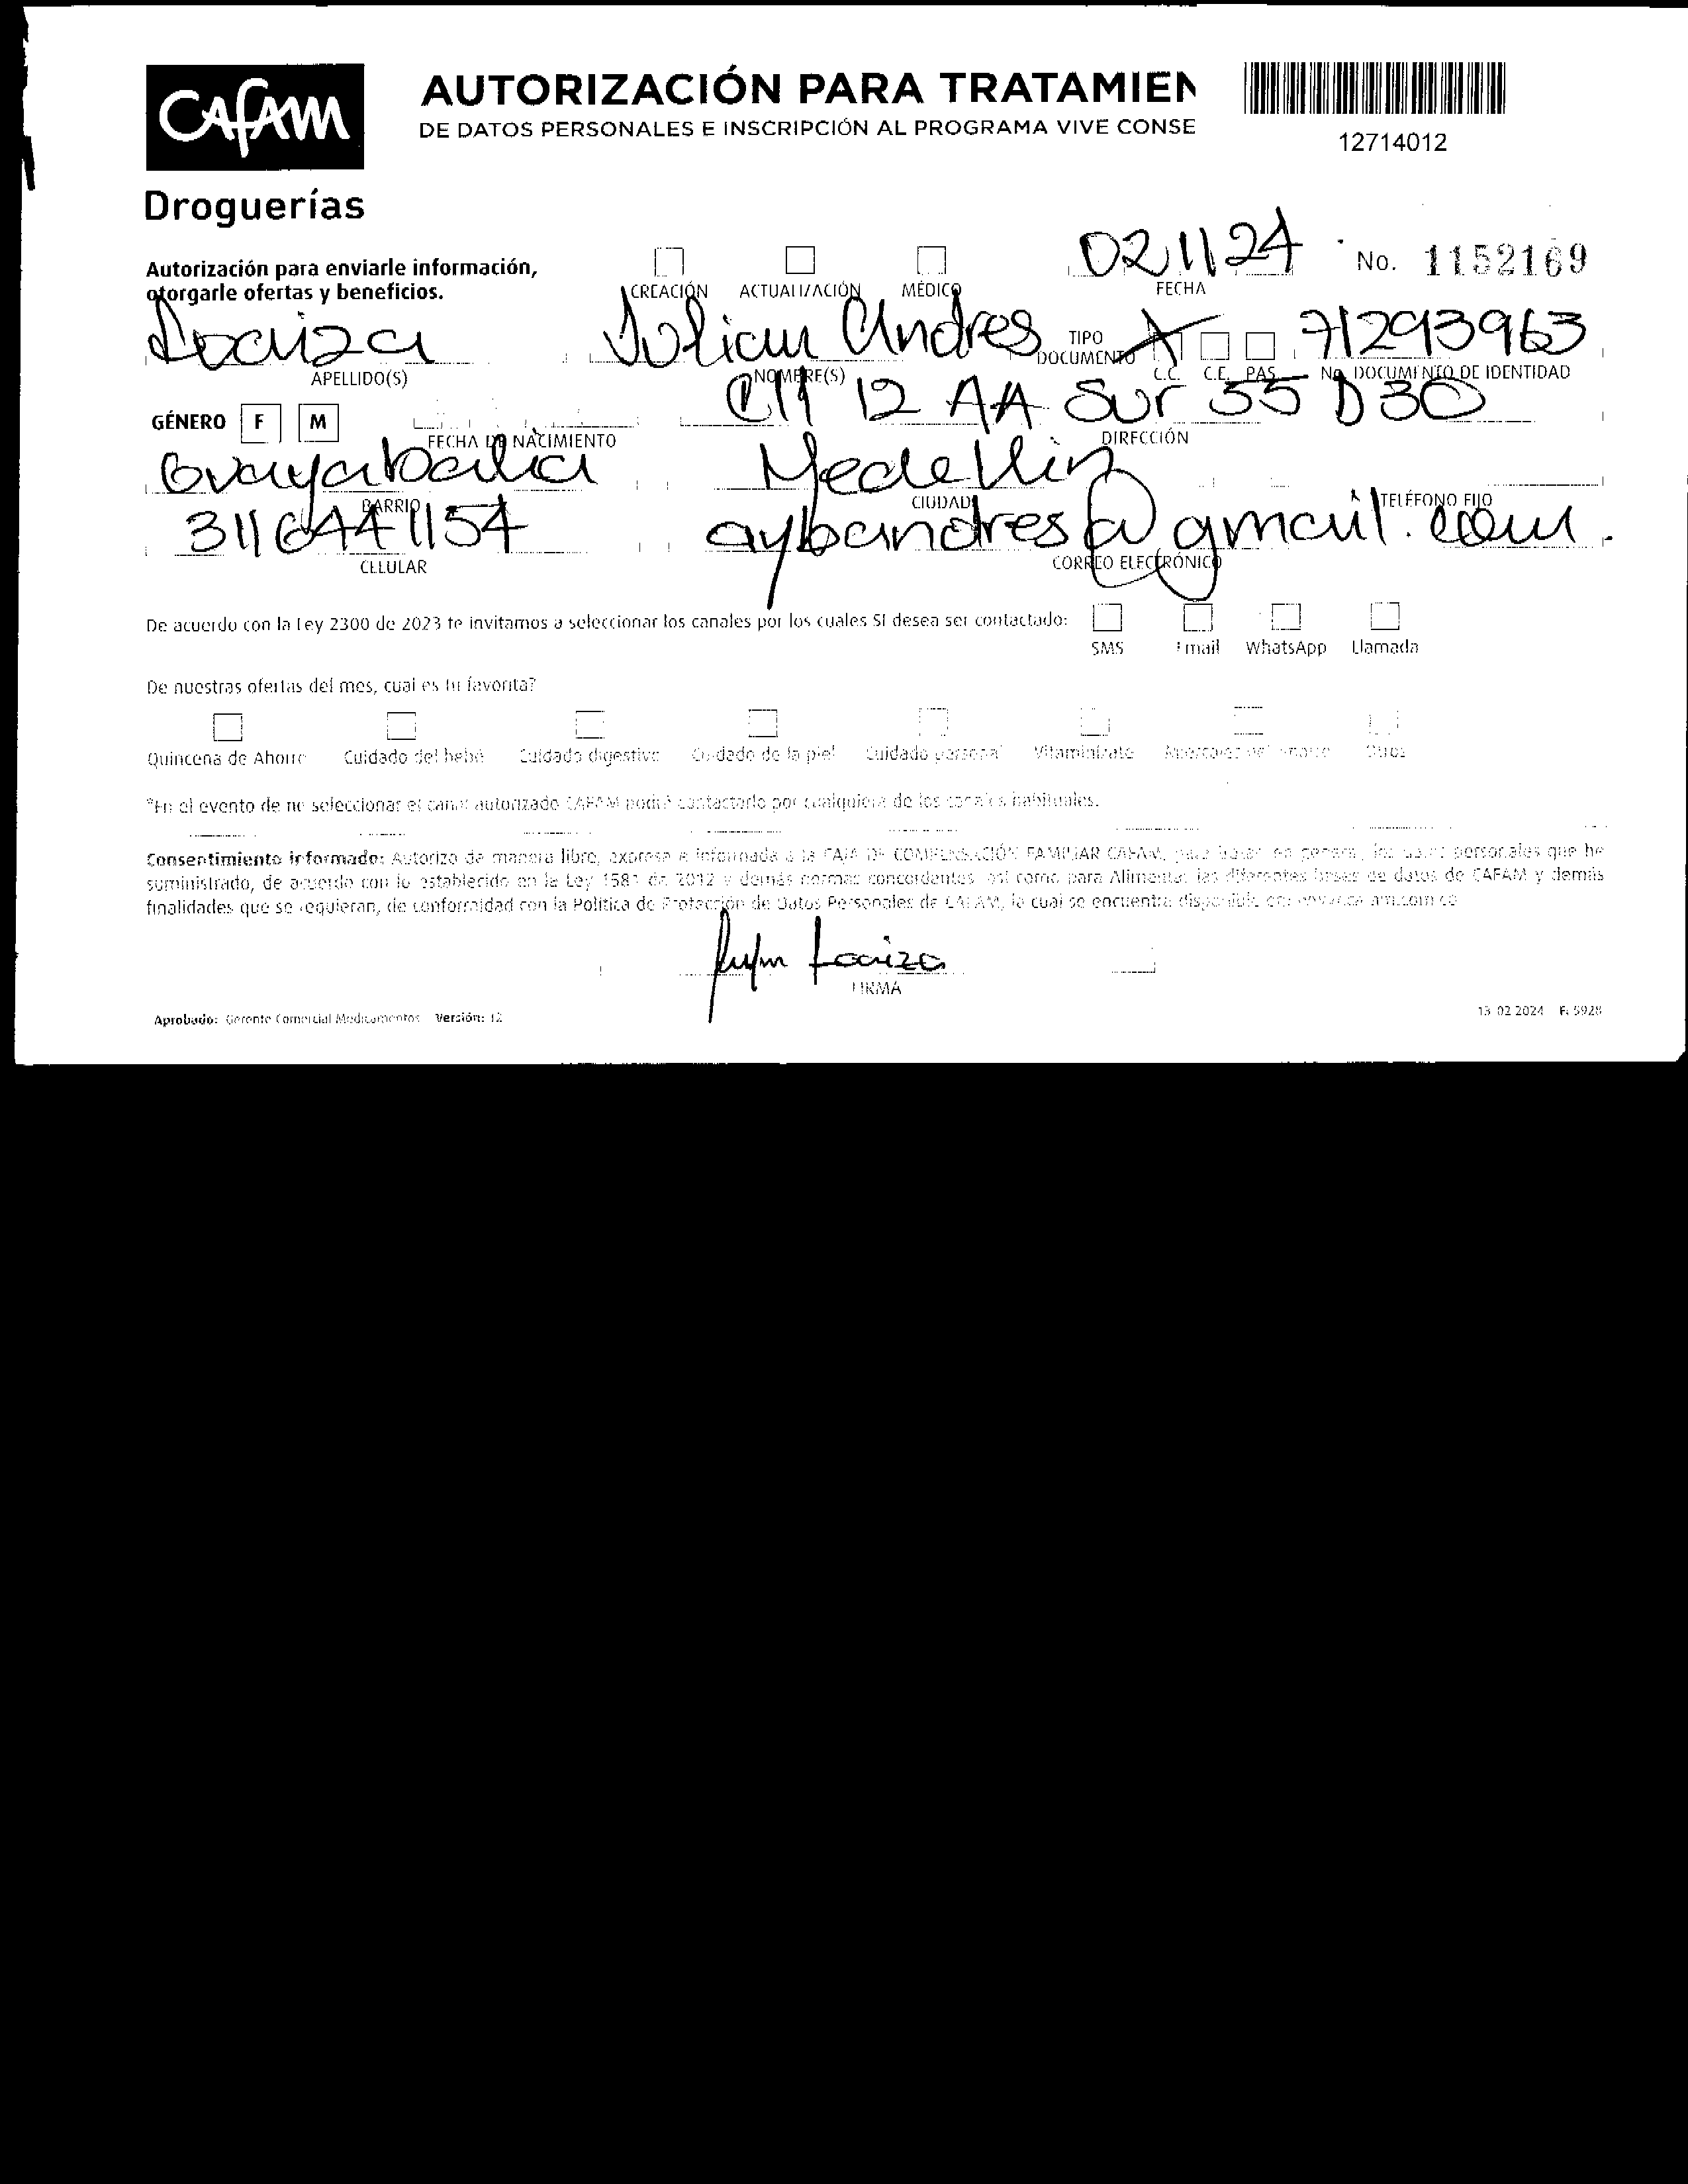 CAFAM
Droguerías
AUTORIZACIÓN PARA TRATAMIEN
DE DATOS PERSONALES E INSCRIPCIÓN AL PROGRAMA VIVE CONSE
12714012
Autorización para enviarle información,
otorgarle ofertas y beneficios.
CREACIÓN ACTUALIZACIÓN MÉDICO
021124
FECHA
No. 1152169
Loaiza Julian Andres
TIPO DOCUMENTO X 71293963
APELLIDO(S) NOMBRE(S) C.C. C.E. PAS. No. DOCUMENTO DE IDENTIDAD
Cll 12 AA Sur 55 D 30
GÉNERO F M
FECHA DE NACIMIENTO DIRECCIÓN
Guayabalia Medellin
BARRIO CIUDAD TELÉFONO FIJO
3116441154 aybandres@gmail.com.
CELULAR CORREO ELECTRÓNICO
De acuerdo con la Ley 2300 de 2023 te invitamos a seleccionar los canales por los cuales SI desea ser contactado:
SMS Email WhatsApp Llamada
De nuestras ofertas del mes, cual es tu favorita?
Quincena de Ahorro Cuidado del bebé Cuidado digestivo Cuidado de la piel Cuidado personal Vitamínizate Otros
*En el evento de no seleccionar el canal autorizado CAFAM podrá contactarlo por cualquiera de los canales habituales.
Consentimiento informado: Autorizo de manera libre, expresa e informada a la CAJA DE COMPENSACIÓN FAMILIAR CAFAM, para tratar en general, los datos personales que he
suministrado, de acuerdo con lo establecido en la Ley 1581 de 2012 y demás normas concordantes, así como para Alimentar las diferentes bases de datos de CAFAM y demás
finalidades que se requieran, de conformidad con la Política de Protección de Datos Personales de CAFAM, la cual se encuentra disponible en:
Loaiza
FIRMA
Aprobado: Gerente Comercial Medicamentos Versión: 12
13 02 2024 F. 5928